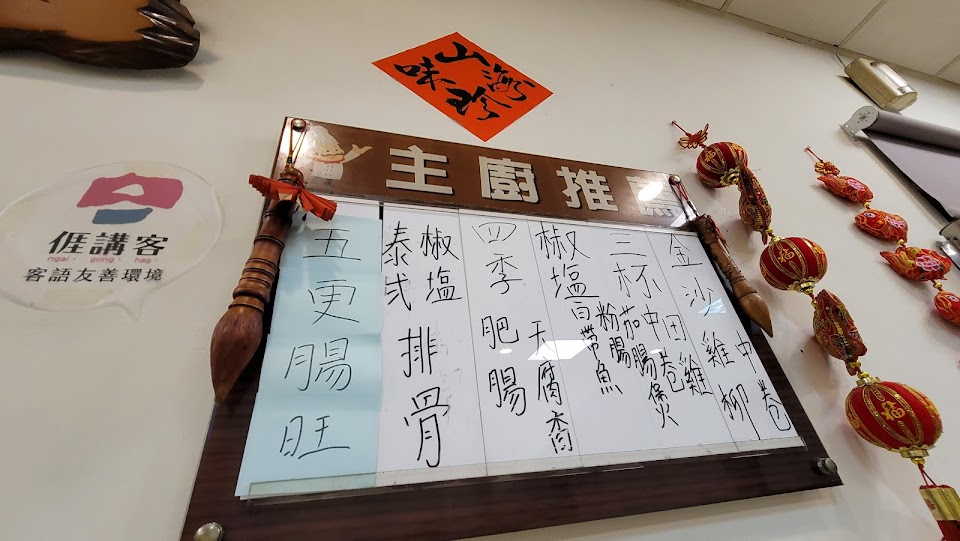 山珍海味
主廚推薦
金沙
中卷
雞柳
三杯
田雞
中卷
茄腸煲
粉腸
椒塩
白帶魚
四季肥腸
椒塩
泰式
排骨
五更腸旺
𠊎講客
ngai gong hag
客語友善環境
福
福
福